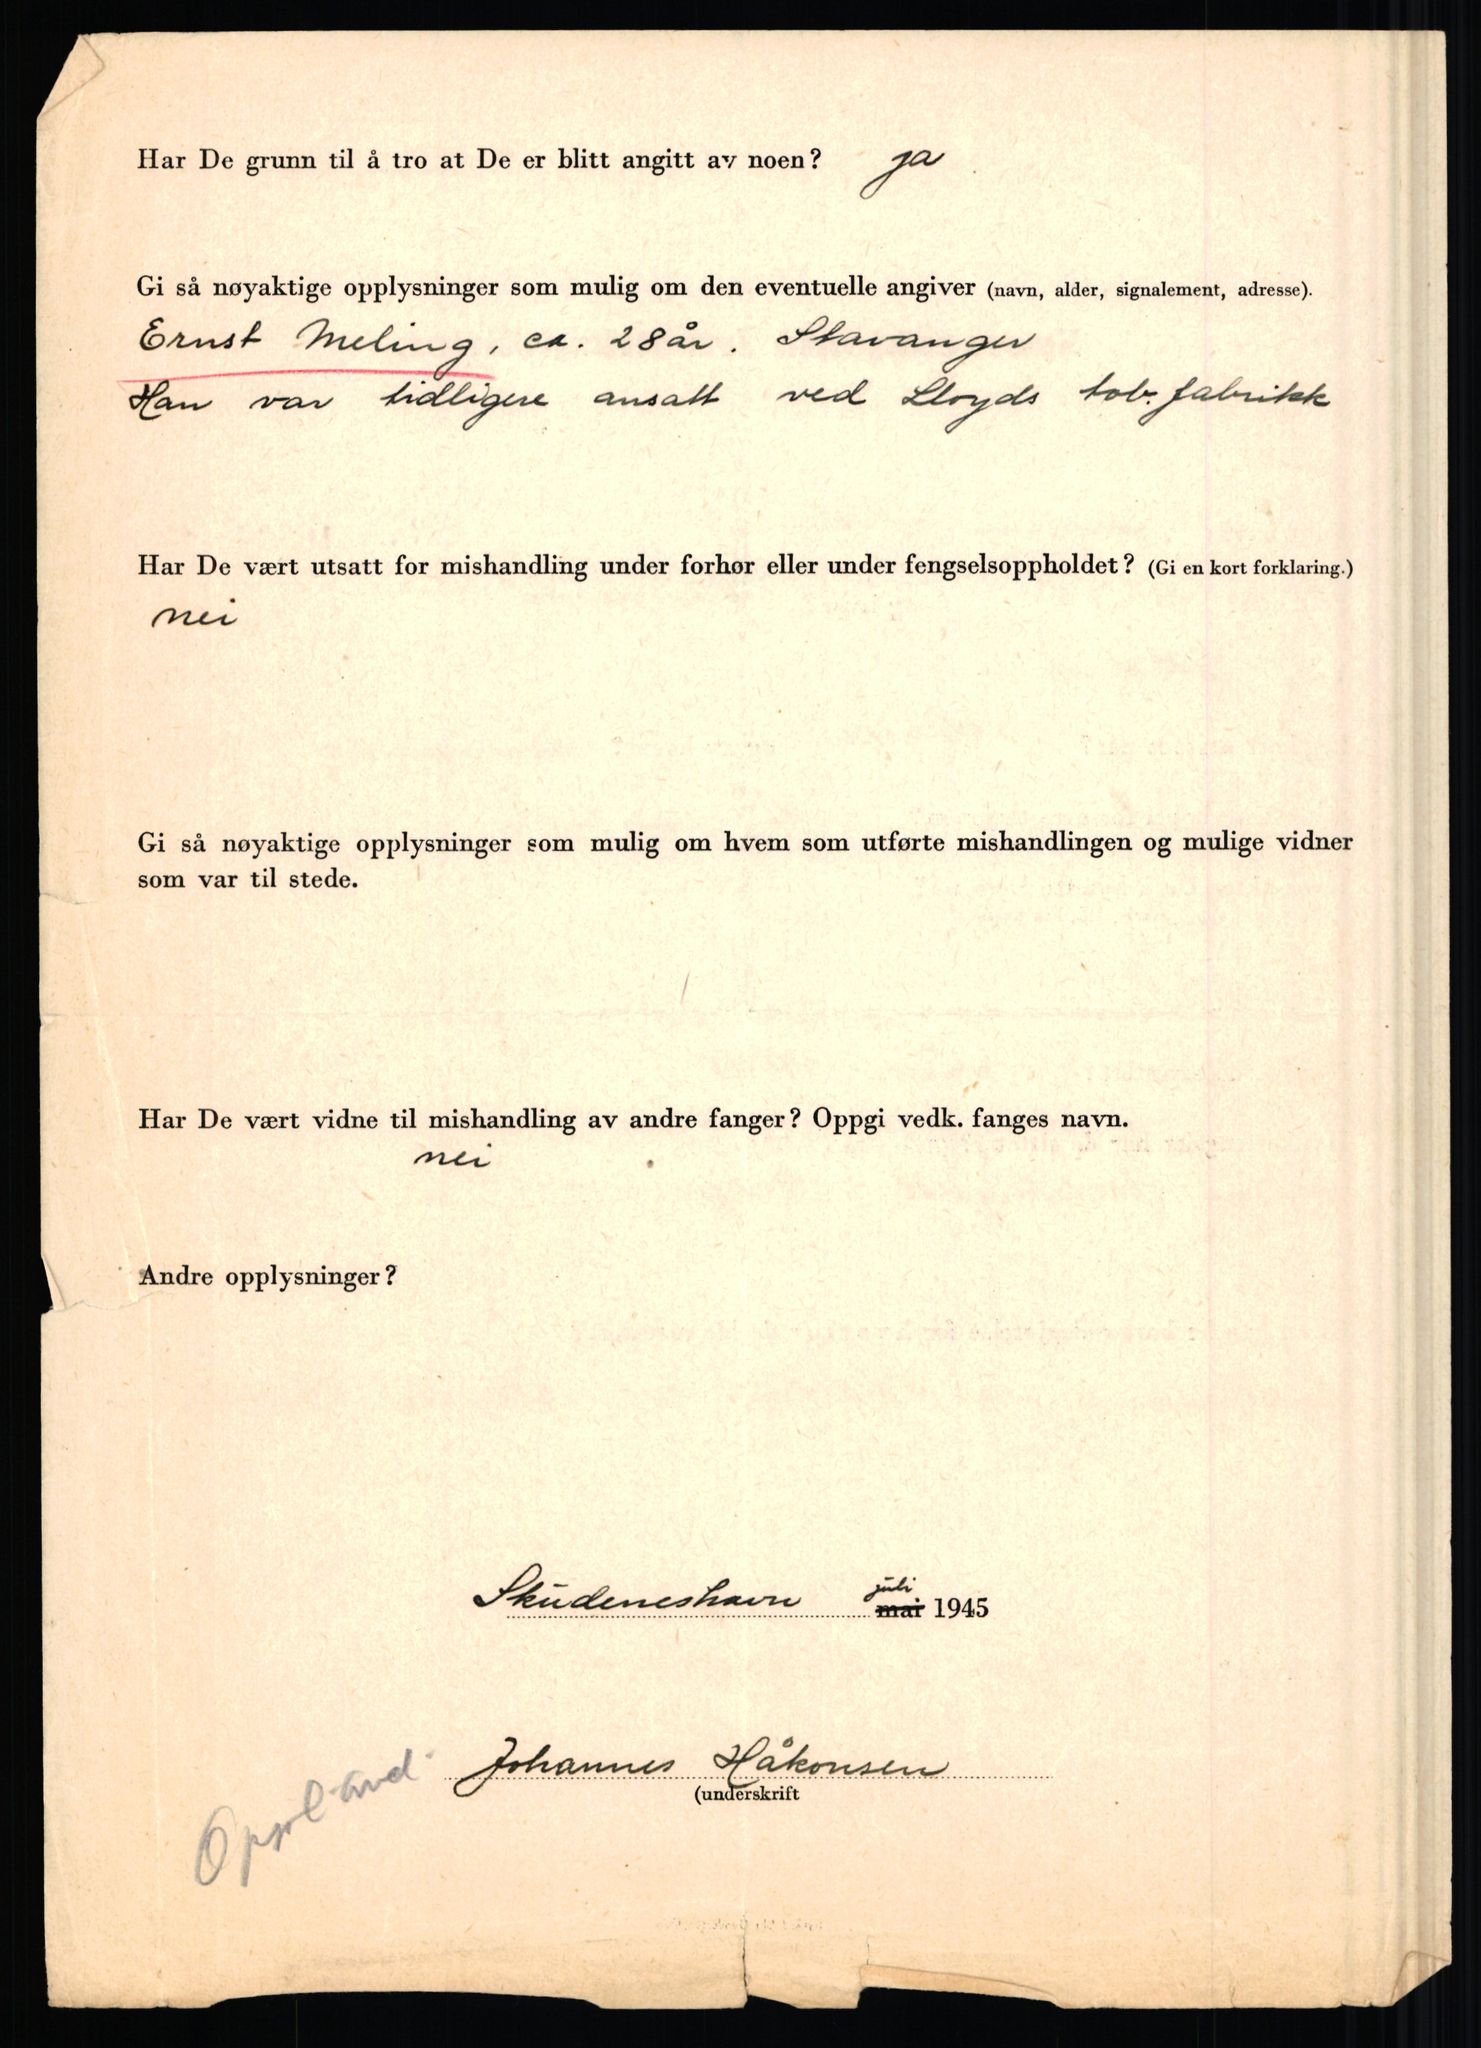 Har De grunn til å tro at De er blitt angitt av noen? ja
Gi så nøyaktige opplysninger som mulig om den eventuelle angiver (navn, alder, signalement, adresse).
Ernst Meling, ca. 28 år. Stavanger
Han var tidligere ansatt ved Lloyds tob. fabrikk
Har De vært utsatt for mishandling under forhør eller under fengselsoppholdet? (Gi en kort forklaring.)
nei
Gi så nøyaktige opplysninger som mulig om hvem som utførte mishandlingen og mulige vidner
som var til stede.
Har De vært vidne til mishandling av andre fanger? Oppgi vedk. fanges navn.
nei
Andre opplysninger?
juli
Skudeneshavn mai 1945
Johannes Håkonsen
(underskrift